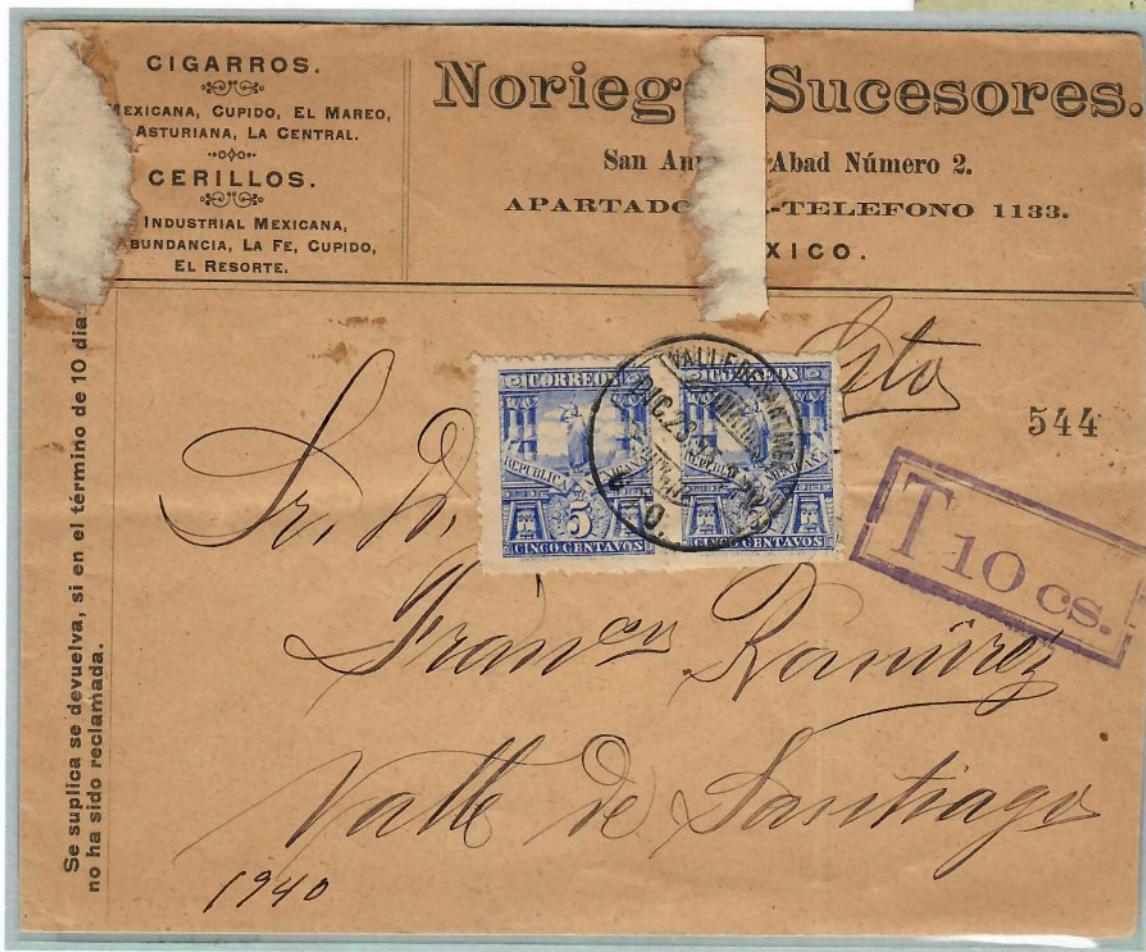 CIGARROS.
MEXICANA, CUPIDO, EL MAREO,
ASTURIANA, LA CENTRAL.
CERILLOS.
INDUSTRIAL MEXICANA,
BUNDANCIA, LA FE, CUPIDO,
EL RESORTE.
Norieg Sucesores.
San An Abad Número 2.
APARTADO -TELEFONO 1133.
XICO.
Se suplica se devuelva, si en el término de 10 dia
no ha sido reclamada.
Gto
544
CORREOS
REPUBLICA MEXICANA
5
CINCO CENTAVOS
CORREOS
REPUBLICA MEXICANA
CENTAVOS
DIC. 2
T 10 cs.
Sr. D.
Franco. Ramirez
Valle de Santiago
1940